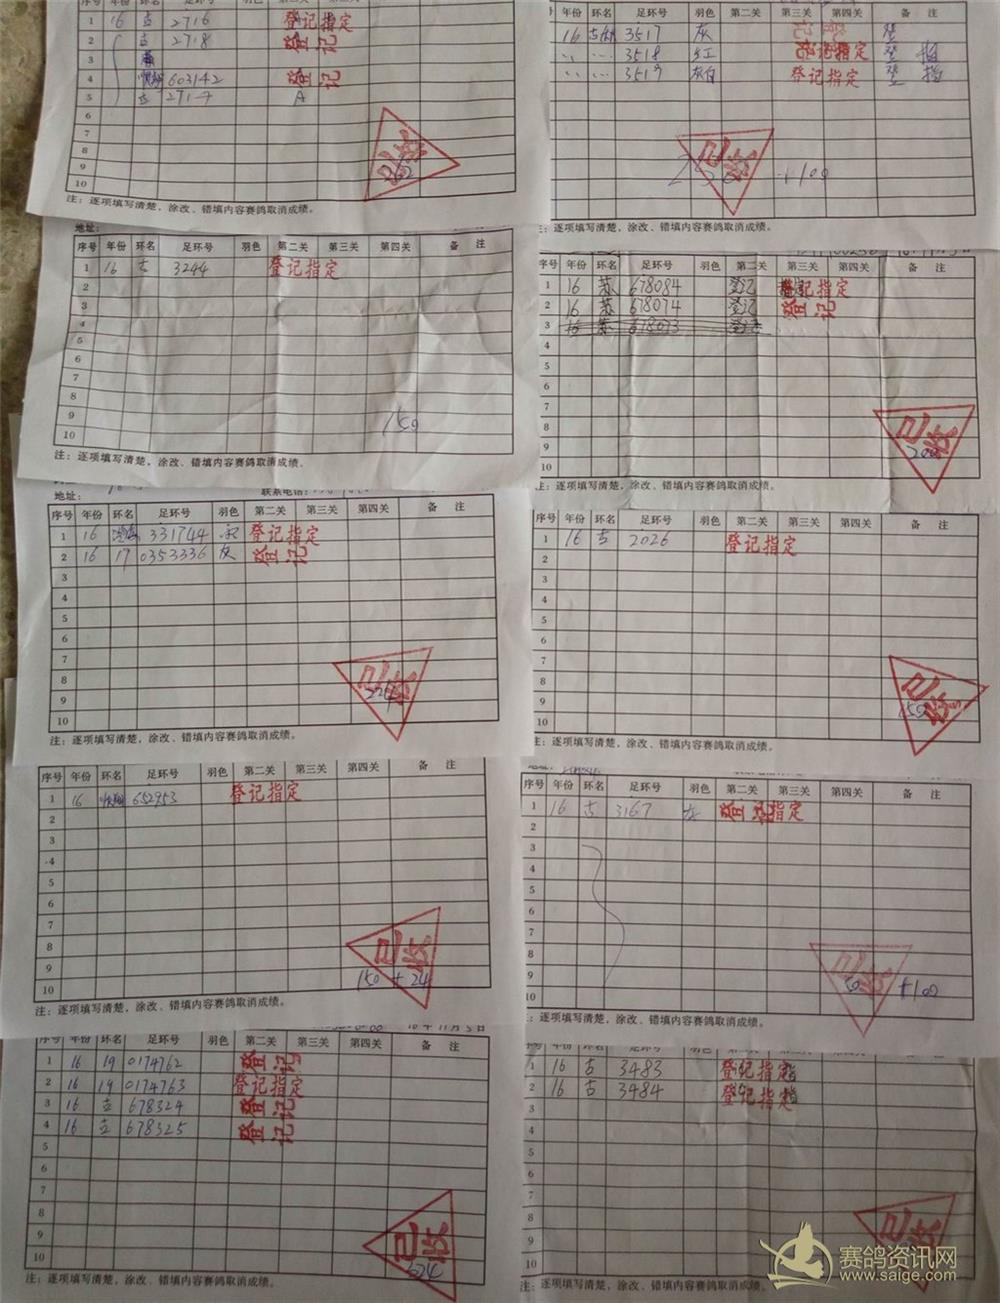 序号 年份 环名 足环号 羽色 第二关 第三关
1 16 古 2716 登记指定
2 古 2718 登记
3
4 603142 登记
5 古 A
6
7
8
9
10
已收
注：逐项填写清楚，涂改、错填内容赛鸽取消成绩。
年份 环名 足环号 羽色 第二关 第三关 第四关 备 注
16 古 3517 灰 登记 登
3518 红 登记指定 登 指
3519 灰白 登记指定 登 指
已收
+100
注：逐项填写清楚，涂改、错填内容赛鸽取消成绩。
地址：
序号 年份 环名 足环号 羽色 第二关 第三关 第四关 备 注
1 16 古 3244 登记指定
2
3
4
5
6
7
8
9
10
150
注：逐项填写清楚，涂改、错填内容赛鸽取消成绩。
序号 年份 环名 足环号 羽色 第二关 第三关 第四关 备 注
1 16 苏 678084 登记 登记指定
2 16 苏 678074 登记 登记
3 16 苏 678073 登记
4
5
6
7
8
9
10
已收
200
注：逐项填写清楚，涂改、错填内容赛鸽取消成绩。
地址： 联系电话：
序号 年份 环名 足环号 羽色 第二关 第三关 第四关 备 注
1 16 331744 登记指定
2 16 17 0353336 灰 登记
3
4
5
6
7
8
9
10
已收
224
注：逐项填写清楚，涂改、错填内容赛鸽取消成绩。
序号 年份 环名 足环号 羽色 第二关 第三关 第四关 备 注
1 16 古 2026 登记指定
2
3
4
5
6
7
8
9
10
已收
150
注：逐项填写清楚，涂改、错填内容赛鸽取消成绩。
序号 年份 环名 足环号 羽色 第二关 第三关 第四关 备 注
1 16 652953 登记指定
2
3
4
5
6
7
8
9
10
已收
150 + 24
注：逐项填写清楚，涂改、错填内容赛鸽取消成绩。
序号 年份 环名 足环号 羽色 第二关 第三关 第四关 备 注
1 16 古 3167 灰 登记指定
2
3
4
5
6
7
8
9
10
已收
50 +100
注：逐项填写清楚，涂改、错填内容赛鸽取消成绩。
16年11月5日
序号 年份 环名 足环号 羽色 第二关 第三关 第四关 备 注
1 16 19 0174762 登记
2 16 19 0174763 登记指定
3 16 立 678324 登记
4 16 立 678325 登记
5
6
7
8
9
10
已收
注：逐项填写清楚，涂改、错填内容赛鸽取消成绩。
序号 年份 环名 足环号 羽色 第二关 第三关 第四关 备 注
1 16 古 3483 登记指定
2 16 古 3484 登记指定
3
4
5
6
7
8
9
10
已收
注：逐项填写清楚，涂改、错填内容赛鸽取消成绩。
赛鸽资讯网
www.saige.com